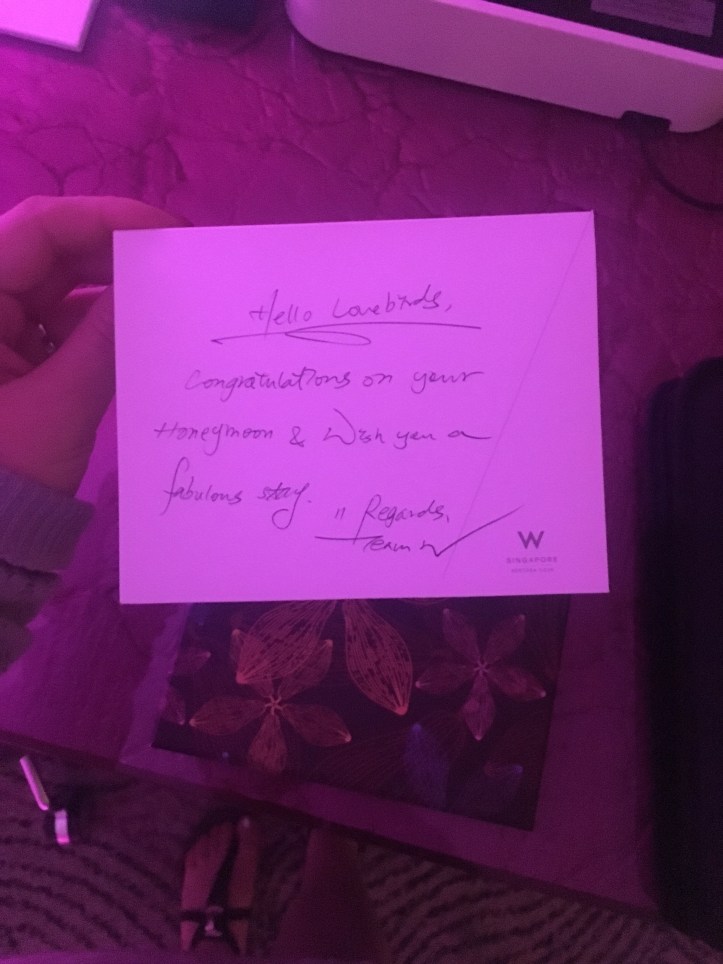 Hello Lovebirds,
Congratulations on your
Honeymoon & Wish you a
fabulous stay.
" Regards,
Team W
W
SINGAPORE
SENTOSA COVE